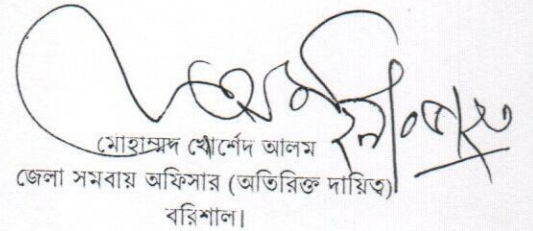 মোহাম্মদ খোর্শেদ আলম
জেলা সমবায় অফিসার (অতিরিক্ত দায়িত্ব)
বরিশাল।